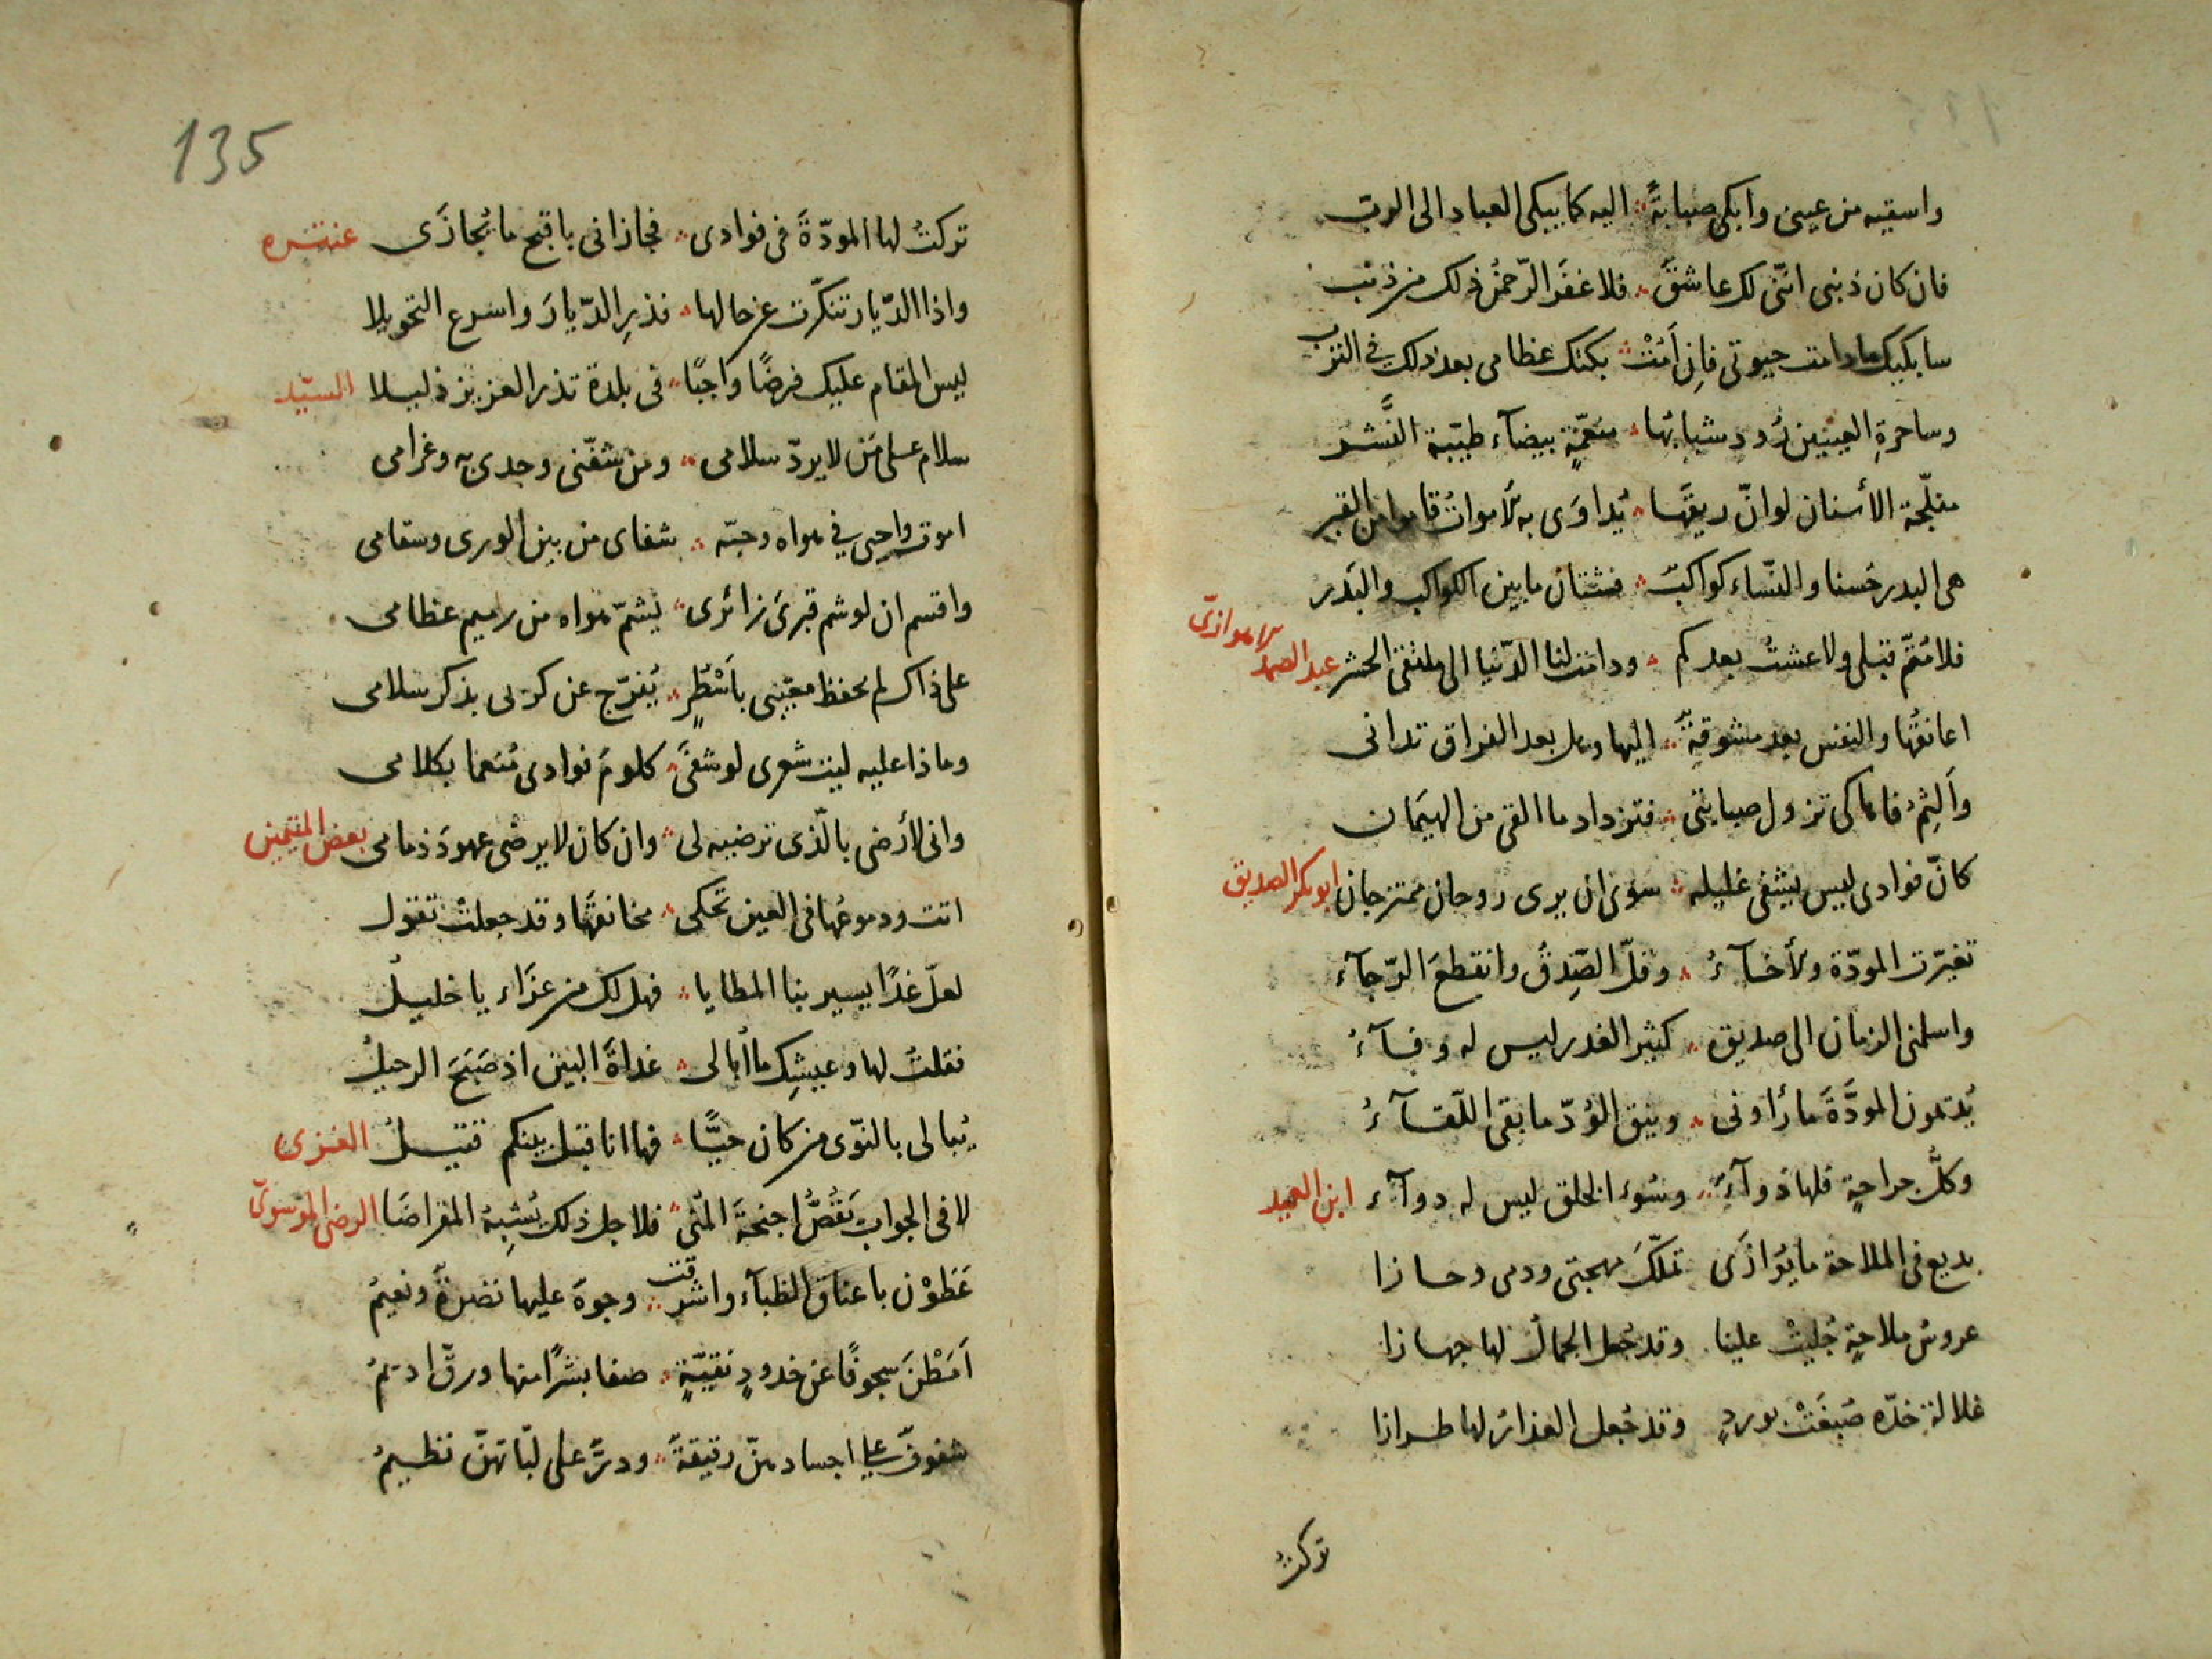 واسقيه من عينى وابكى صبابةً ؞ اليه كما يبكى العباد الى الرب
فان كان ذنبى اننى لك عاشقٌ ؞ فلا غفر الرّحمنُ ذلك من ذنب
سابكيك مادامت حيوتى فاِن اَمُتْ ؞ بكتك عظامى بعد ذلك فى الترب
وساحرةِ العينين رُود شبابُها ؞ منعّمةٍ بيضآء طيّبة النَّشر
مفلّجة الأسنان لو انّ ريقَها ؞ يُداوَى به لاموات قاموا من القبر
هى البدر حسنا والنّساء كواكبٌ ؞ فشتان ما بين الكواكب والبَدر
فلا متّم قبلى ولا عشتُ بعدكم ؞ ودامت لنا الدّنيا الى ملتقى الحشر عبد الصمد لاهوازىّ
اعانقُها والنفس بعد مشوقةٌ ؞ اليها وهل بعد الفراق تدانى
وألثِمُ فاها كى تزول صبابتى ؞ فتزداد ما القى من الهيَمان
كانّ فوادى ليس يشفى غليله ؞ سوى ان يرى روحان ممتزجان ابوبكر الصديق
تغيّرت المودّة ولأخآءُ ؞ وقلّ الصِّدقُ وانقطعَ الرّجآء
واسلمنى الزمان الى صديق ؞ كثير الغدر ليس له وفآءُ
يُديمون المودَّةَ ما رأونى ؞ ويبقى الوُدّ ما بقى اللّقآءُ
وكلُّ جراحةٍ فلها دوآءٌ ؞ وسُوء الخلق ليس له دوآء ابن العميد
بديع فى الملاحة ما يُوازَى تملّكَ مهجتى ودمى وحازا
عروسُ ملاحةٍ جُلِيتْ علينا وقد جُعل الجمالُ لها جهازا
غلالة خدّه صُبِغَتْ بوردٍ وقد جُعل العذارُ لها طرازا
تركتُ
135
تركتُ لها المودّةَ فى فوادى ؞ فجازانى باقبح ما يُجازَى عنتره
واذا الدّيار تنكّرت عن حالها ؞ فذرِ الدّيارَ واسرع التحويلا
ليس المقام عليك فرضًا واجبًا ؞ فى بلدة تذر العزيز ذليلا السيّد
سلام على مَن لا يردّ سلامى ؞ ومن شفّنى وجدى به وغرامى
اموت واحيى فى هواه وحبّه ؞ شفاى من بين الورى وسقامى
واقسم ان لو شم قبرىَ زائرى ؞ ليشمّ هواه من رميم عظامى
على ذاك لم يحفظ مغيبى باَسْطُرٍ ؞ يُفرّج عن كربى بذكر سلامى
وماذا عليه ليت شعرى لو شفى ؞ كلومَ فوادى مُنعما بكلامى
وانى لأرضى بالّذى ترضيه لى ؞ وان كان لا يرضى عهودَ ذمامى بعض المتيمين
اتت ودموعُها فى العين تحكى ؞ مخانقَها وقد جعلتْ تقول
لعلّ غدًا يسير بنا المطايا ؞ فهل لك من عزَاء يا خليلُ
فقلتُ لها وعيشِك ما أبالى ؞ غداةَ البين اذ صَبَحَ الرحيلُ
يُبالى بالنّوى من كان حيًّا ؞ فها انا قبل بينكم قتيلُ الغزى
لا فى الجواب يَقُصُّ اجنحةَ المُنى ؞ فلاجل ذلك يُشبِهُ المقراضَا الرضى الموسوىّ
عَطَوْن باعناق الظبآء واشرقت ؞ وجوهٌ عليها نضرةٌ ونعيمُ
اَمَطْنَ سجوفًا عن خدودٍ نقيّةٍ ؞ صفا بشرٌا منها ورقّ اديمُ
شفوفٌ على اجسادهنّ رقيقةٌ ؞ ودرٌّ على لبّاتهنّ نظيمُ